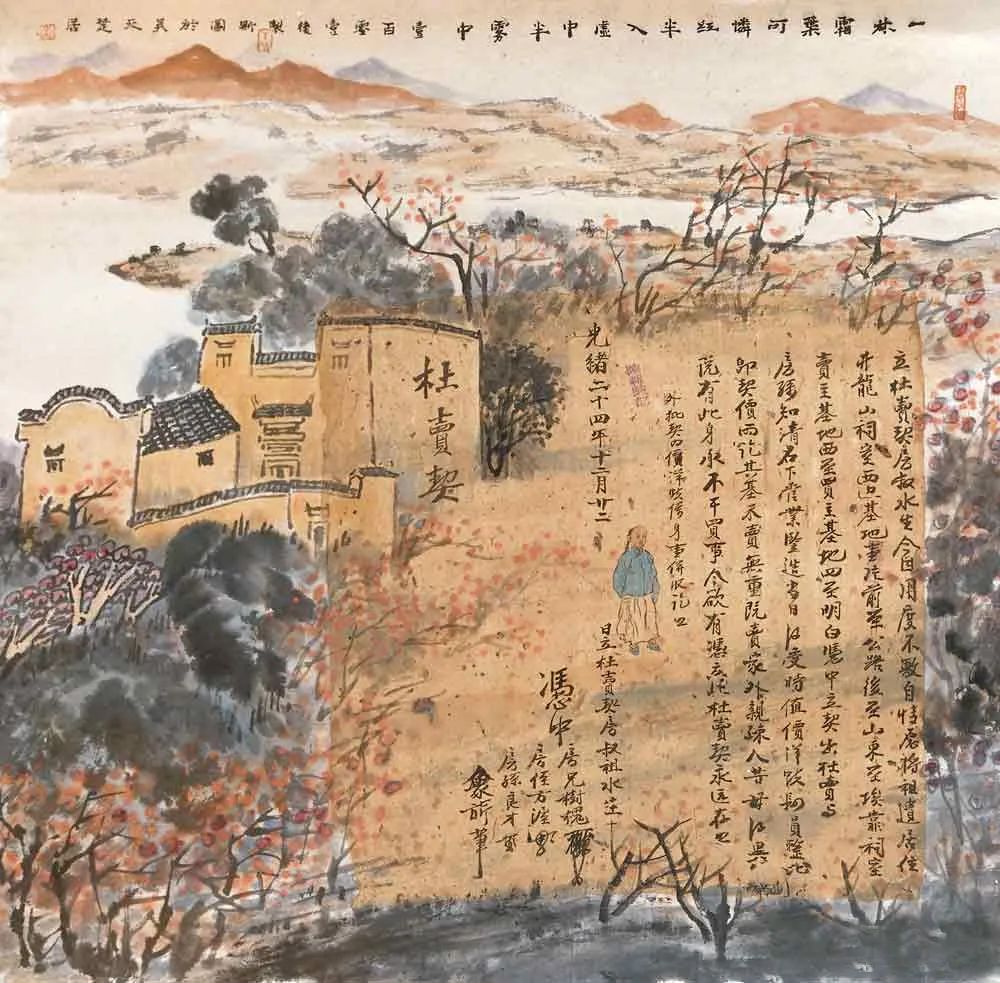 一林霜葉可憐紅半入虛中半霧中 壹百零壹後製斯圖於 天楚居
立杜賣契房叔水生今因用度不敷自情愿將祖遺居住
井龍山祠堂西边基地壹片前至公路後至山東至埃靠祠堂
賣主基地西至買主基地四至明白憑中立契出杜賣与
房孫知清名下管業豎造當日得受時值價洋 員整此
即契價两訖其基未賣無重既賣家外親疎人昔毋得異
既有此身永不干買事今欲有憑立此杜賣契永远存
外批契内價洋 身壹併收訖
光緒二十四年十二月廿二
日立杜賣契房叔祖水生
憑中
房兄樹槐
房侄方
房孫良才
筆
杜賣契